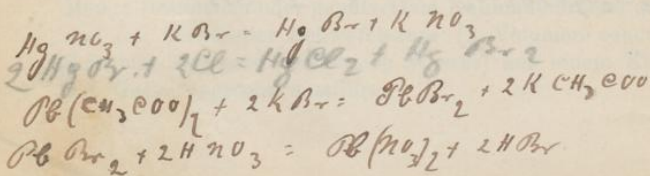 Hg NO3 + K Br = Hg Br + K NO3
2 Hg Br + 2Cl = Hg Cl2 + Hg Br2
Pb(CH3COO)2 + 2 K Br = Pb Br2 + 2 K CH3COO
Pb Br2 + 2 H NO3 = Pb(NO3)2 + 2 H Br